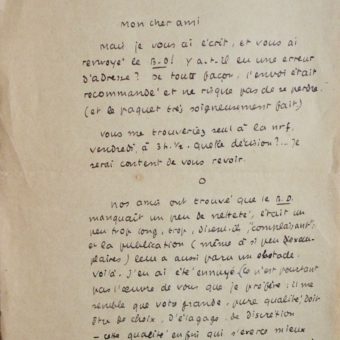 mon cher ami
Mais je vous ai écrit, et vous ai
renvoyé le B.D! Y a.t.il eu une erreur
d'adresse? De toute façon, l'envoi était
recommandé et ne risque pas de se perdre.
(et le paquet très soigneusement fait)
vous me trouveriez seul à la nrf.
vendredi, à 3h.½. quelle décision?... je
serai content de vous revoir.
O
Nos amis ont trouvé que le B.D.
manquait un peu de netteté, était un
peu trop long, trop, disent-ils, "complaisant";
et la publication (même à si peu d'exem-
plaires) leur a aussi paru un obstacle.
voilà. J'en ai été ennuyé (ce n'est pourtant
pas l'œuvre de vous que je préfère: il me
semble que votre grande, pure qualité doit
être de choix, d'élagage, de discrétion
- cette qualité enfin qui s'exerce mieux